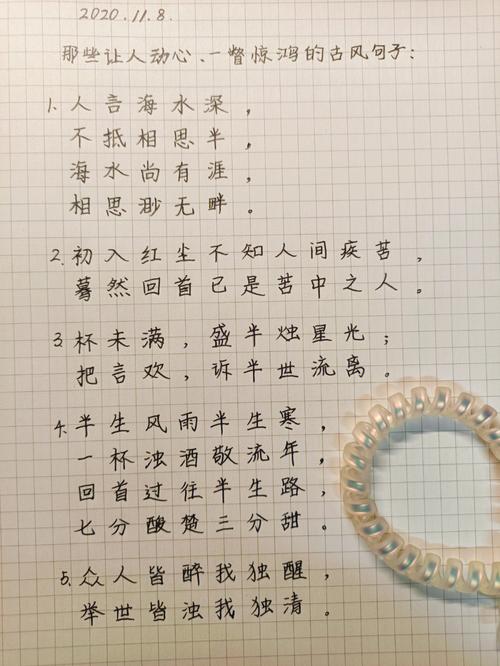 2020.11.8.
那些让人动心、一瞥惊鸿的古风句子:
1. 人言海水深，
不抵相思半，
海水尚有涯，
相思渺无畔。
2. 初入红尘不知人间疾苦，
蓦然回首已是苦中之人。
3. 杯未满，盛半烛星光；
把言欢，诉半世流离。
4. 半生风雨半生寒，
一杯浊酒敬流年，
回首过往半生路，
七分酸楚三分甜。
5. 众人皆醉我独醒，
举世皆浊我独清。